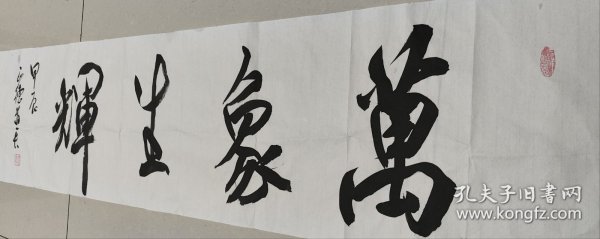 萬象生輝
甲辰
孔夫子旧书网
www.kongfz.com